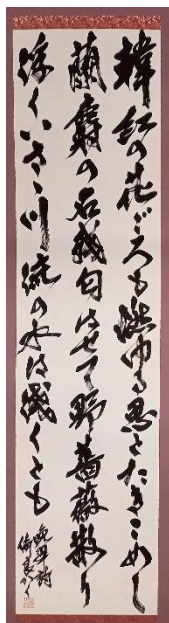 韓紅の花ごろも燃ゆる思とたきこめし
蘭麝の名残匂はせて野薔薇散り
浮くいさゝ川流の水は浅くとも
晩翠詩